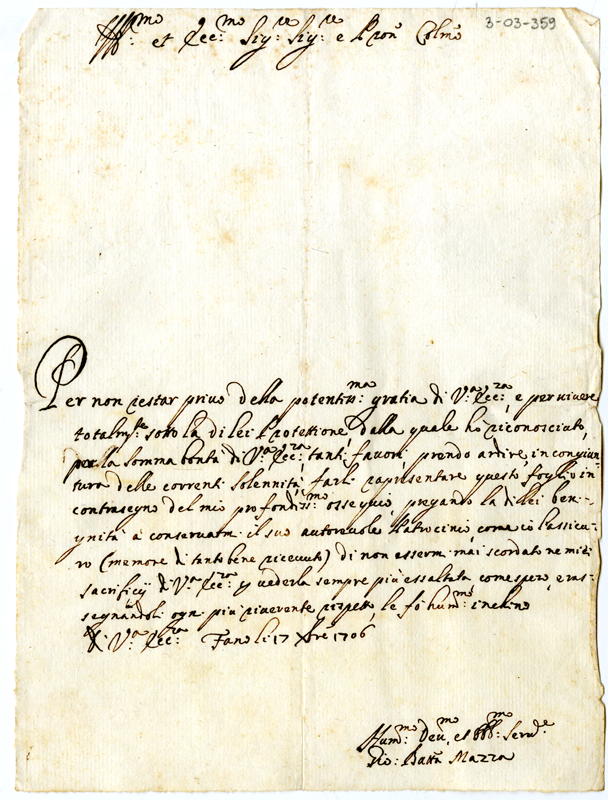 3-03-359
Ill:mo et Ecc:mo Sig:re Sig:re e Pron Colmo
Per non restar privo della potentiss:ma gratia di V:a Ecc:za, e per vivere
totalm:te sotto la di lei Protettione, dalla quale ho riconosciato,
per la somma bontà di V:a Ecc:za tanti favori, prendo ardire, in congiun-
tura delle correnti solennità, farli rapresentare questo foglio in
contrasegno del mio profondiss:mo ossequio, pregando la di lei beni-
gnità à conservarmi il suo autorevole Patrocinio, come io l'assicu-
ro (memore di tanto bene ricevuto) di non essermi mai scordato ne miei
sacrificij di V:a Ecc:za p vederla sempre più essaltata come spero, e ras-
segnandoli ogni più riverente rispetto, le fò hum:mo inchino
Di V:a Ecc:za Fano li 17 Xbre 1706
Hum:mo Dev:mo et Obb:mo Serv:e
Gio: Batta Mazza